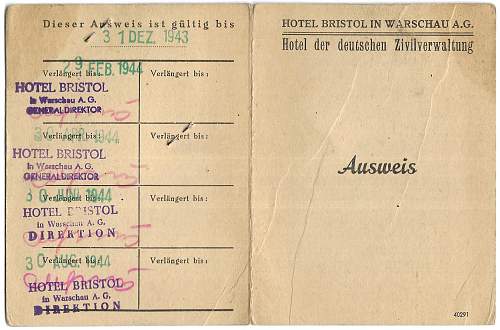 Dieser Ausweis ist gültig bis
31 DEZ. 1943
Verlängert bis:
Verlängert bis:
29 FEB. 1944
HOTEL BRISTOL
in Warschau A. G.
GENERALDIREKTOR
Verlängert bis:
Verlängert bis:
1944
HOTEL BRISTOL
in Warschau A. G.
GENERALDIREKTOR
Verlängert bis:
Verlängert bis:
30 JUNI 1944
HOTEL BRISTOL
in Warschau A. G.
DIREKTION
Verlängert bis:
Verlängert bis:
30 AUG. 1944
HOTEL BRISTOL
in Warschau A. G.
DIREKTION
HOTEL BRISTOL IN WARSCHAU A.G.
Hotel der deutschen Zivilverwaltung
Ausweis
40291